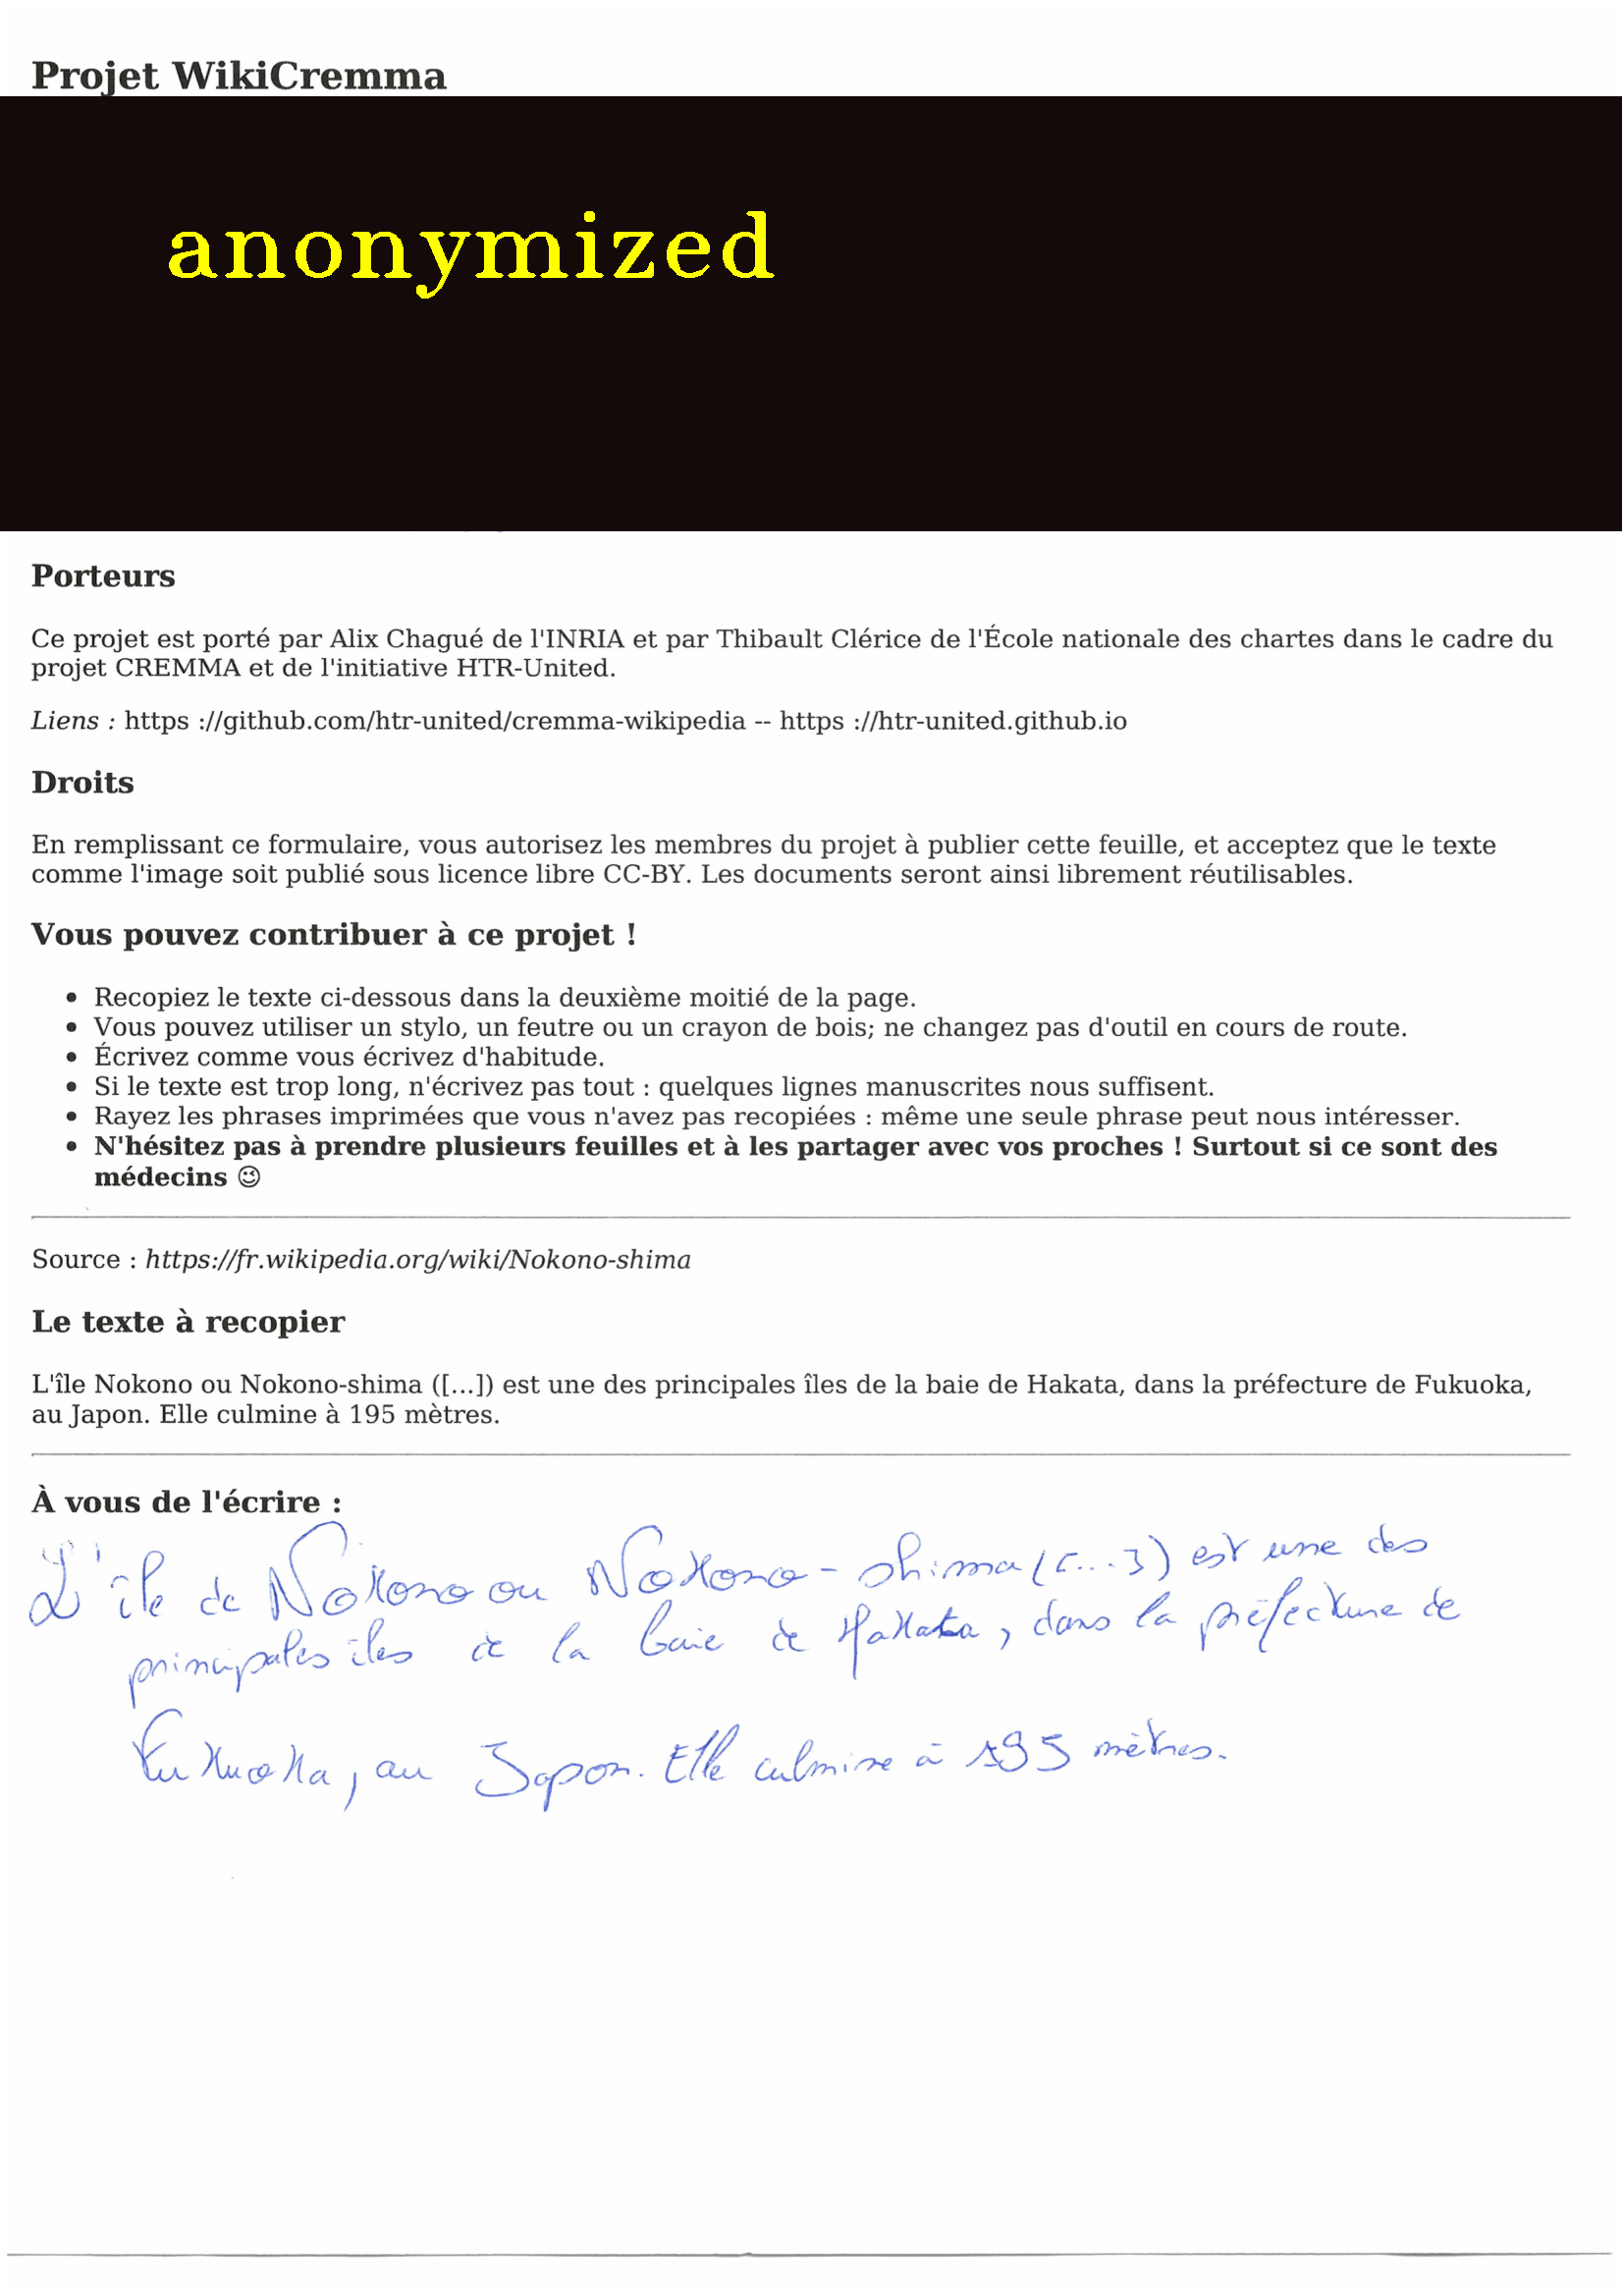 Projet WikiCremma
anonymized
Porteurs
Ce projet est porté par Alix Chagué de l'INRIA et par Thibault Clérice de l'École nationale des chartes dans le cadre du
projet CREMMA et de l'initiative HTR-United.
Liens : https ://github.com/htr-united/cremma-wikipedia -- https ://htr-united.github.io
Droits
En remplissant ce formulaire, vous autorisez les membres du projet à publier cette feuille, et acceptez que le texte
comme l'image soit publié sous licence libre CC-BY. Les documents seront ainsi librement réutilisables.
Vous pouvez contribuer à ce projet !
• Recopiez le texte ci-dessous dans la deuxième moitié de la page.
• Vous pouvez utiliser un stylo, un feutre ou un crayon de bois; ne changez pas d'outil en cours de route.
• Écrivez comme vous écrivez d'habitude.
• Si le texte est trop long, n'écrivez pas tout : quelques lignes manuscrites nous suffisent.
• Rayez les phrases imprimées que vous n'avez pas recopiées : même une seule phrase peut nous intéresser.
• N'hésitez pas à prendre plusieurs feuilles et à les partager avec vos proches ! Surtout si ce sont des
médecins 😉
Source : https://fr.wikipedia.org/wiki/Nokono-shima
Le texte à recopier
L'île Nokono ou Nokono-shima ([...]) est une des principales îles de la baie de Hakata, dans la préfecture de Fukuoka,
au Japon. Elle culmine à 195 mètres.
À vous de l'écrire :
L'île de Nokono ou Nokono-shima ([...]) est une des
principales îles de la baie de Hakata, dans la préfecture de
Fukuoka, au Japon. Elle culmine à 195 mètres.